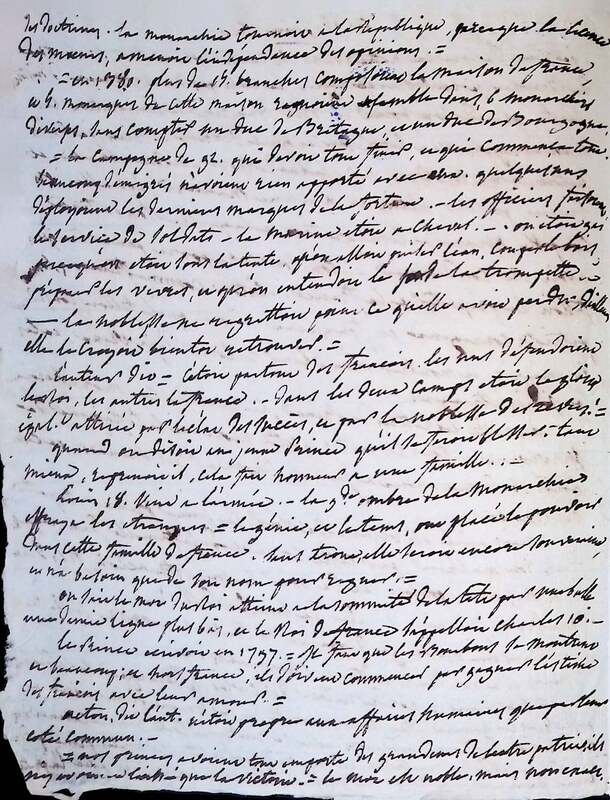 des doctrines. la monarchie tournoit a la République, parceque la licence
des mœurs, amenoit l'indépendance des opinions. =
= en 1780. plus de branches composoient la maison de france
et monarques de cette maison regnoient ensemble dans 6 monarchies
diverses, sans compter un duc de Bretagne, et un duc de Bourgogne
= la Campagne de 92. qui devoit tout finir, et qui commença tout
beaucoup d'émigrés n'avoient rien apporté avec eux. quelques uns
déployoient les derniers marques de la fortune. - les officiers faisoient
le service de soldats - la Marine etoit a cheval. - on etoit gai
parceque on etoit sous la tente, qu'on alloit puiser l'eau, couper le bois
préparer les vivres, et qu'on entendoit le de la trompette. -
- la noblesse ne regrettoit point ce qu'elle avoit perdu - d'ailleurs
elle le croyoit bientot retrouver. =
l'auteur dit = c'etoit partout des françois. les uns défendoient
les autres la france. - dans les deux camps etoit la gloire
égal. attirée par l'éclat des succès, et par la noblesse des revers. =
quand on disoit au jeune Prince qu'il se feroit blesser. tant
mieux, reprenoit il, cela fait honneur a une famille. -
Louis 18. vint a l'armée. - la gde ombre de la Monarchie
effraya les etrangers = le génie, et le tems, ont placé le pouvoir
dans cette famille de france. sans trone, elle seroit encore souveraine,
et n'a besoin que de son nom pour regner. =
on sait le mot du Roi atteint a la sommité de la tête par une balle
une demie ligne plus bas, et le Roi de france s'appelloit Charles 10. -
le Prince ecrivoit en 1797. = Il faut que les Bourbons se montrent
et beaucoup; et hors france, ils doivent commencer par gagner l'estime
des françois avec leur amour. =
acton, dit l'aut. n'etoit propre aux affaires humaines que par leur
coté commun. -
= nos princes avoient tout emporté des grandeurs de leur patrie, ils
n'y avoient laissé que la victoire. = le mot est noble, mais